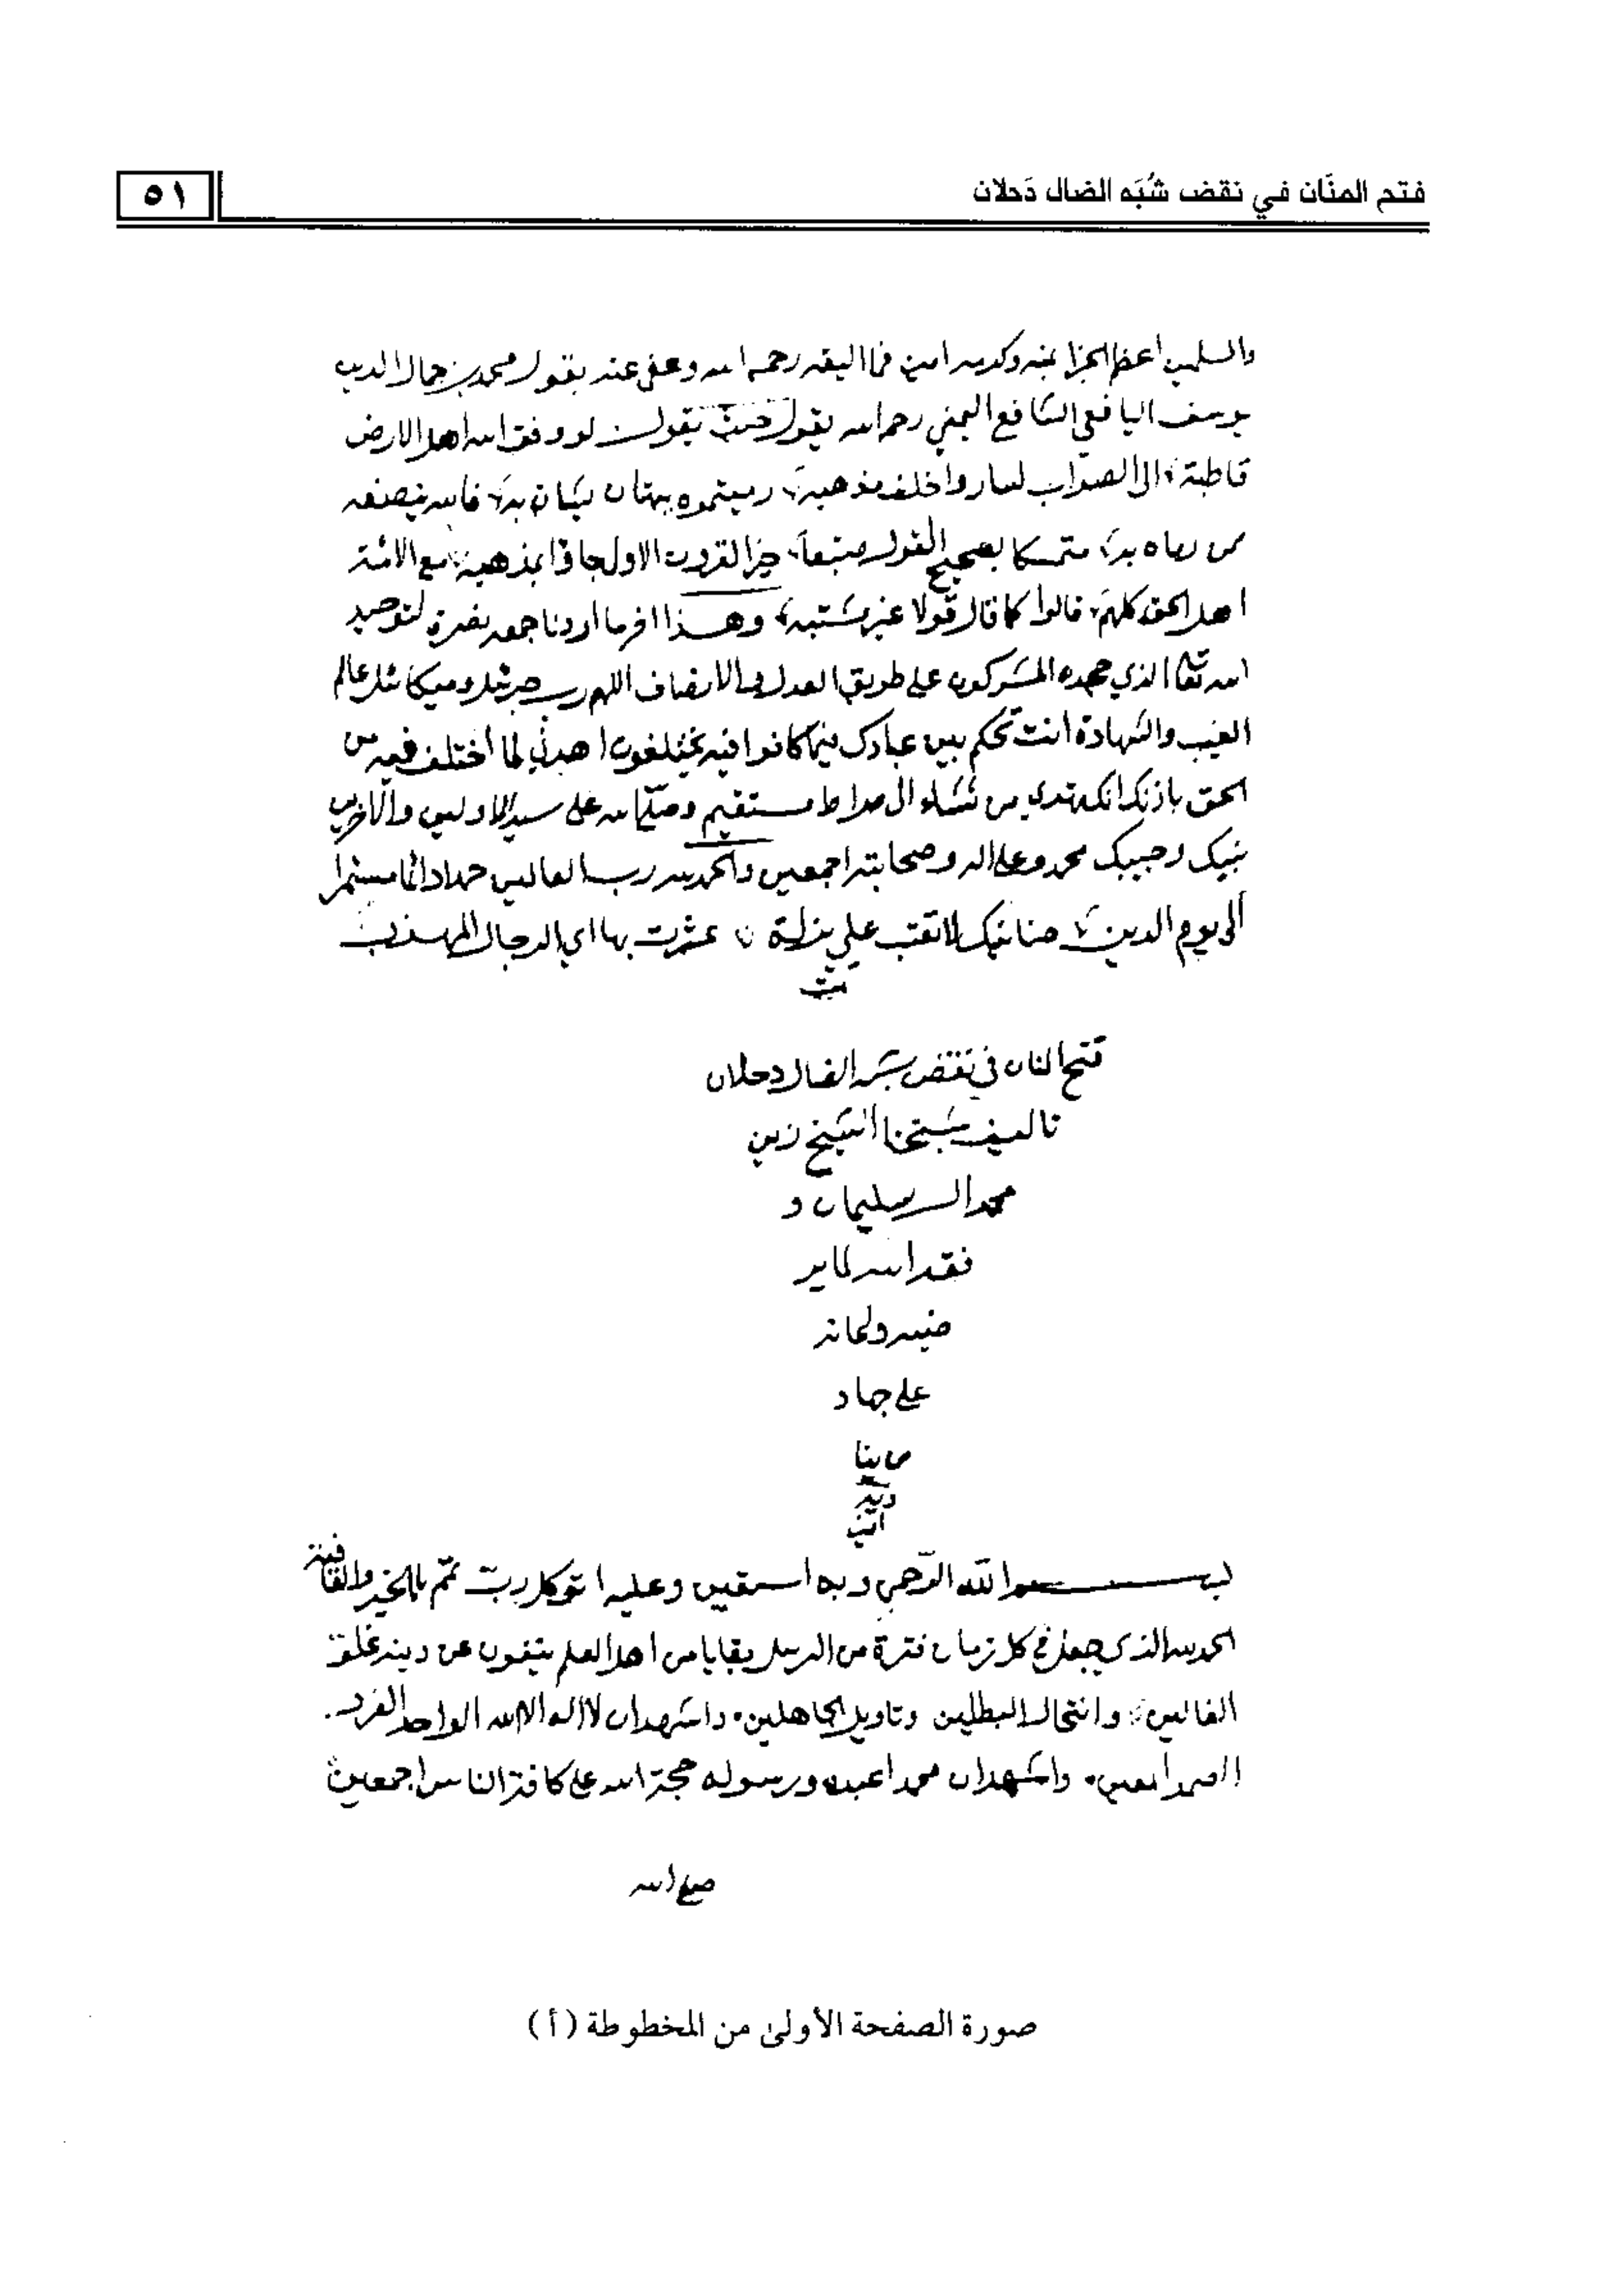 فتح المنّان في نقض شُبَه الضال دَحلان
٥١
والمسلمين اعظم الجزا بمنه وكرمه امين فما اليقه رحمه الله وعفى عنه بقول محمد بن جمال الدين
يوسف اليافعي الشافعي اليمني رحمه الله يقول حيث يقول لو وفق الله اهل الارض
قاطبة الى الصواب لساروا خلف مذهبه
من رماه به متمسكا بصحيح القول متبعا خير القرون الاولى جاؤا بمذهبه مع الائمة
اهل الحق كلهم قالوا كما قال قولا غير مشتبه وهذا اخر ما اردنا جمعه نصرة لتوحيد
الله تعالى الذي جحده المشركون على طريق العدل والانصاف اللهم رب جبرئيل وميكائيل عالم
الغيب والشهادة انت تحكم بين عبادك فيما كانوا فيه يختلفون اهدني لما اختلف فيه من
الحق باذنك انك تهدي من تشاء الى صراط مستقيم وصلى الله على سيد الاولين والآخرين
نبيك وحبيبك محمد وعلى اله وصحابته اجمعين والحمد لله رب العالمين حمدا دائما مستمرا
الى يوم الدين حنانيك لا تعتب علي بزلة عثرت بها اي الرجال المهذب
تمت
فتح المنان في نقض شبه الضال دحلان
تاليف شيخنا الشيخ زين
محمد ال سليمان و
فقه الله لما ير
ضيه واعانه
على جهاد
من بنا
دينه
امين
بسم الله الرحمن وبه استعين وعليه اتوكل رب تمم بالخير والعافية
الحمد لله الذي جعل في كل زمان فترة من الرسل بقايا من اهل العلم ينفون عن دينه غلو
الغالين وانتحال المبطلين وتاويل الجاهلين واشهد ان لا اله الا الله الواحد الفرد
الصمد المعين واشهد ان محمدا عبده ورسوله حجة الله على كافة الناس اجمعين
صلى الله
صورة الصفحة الأولى من المخطوطة (أ)